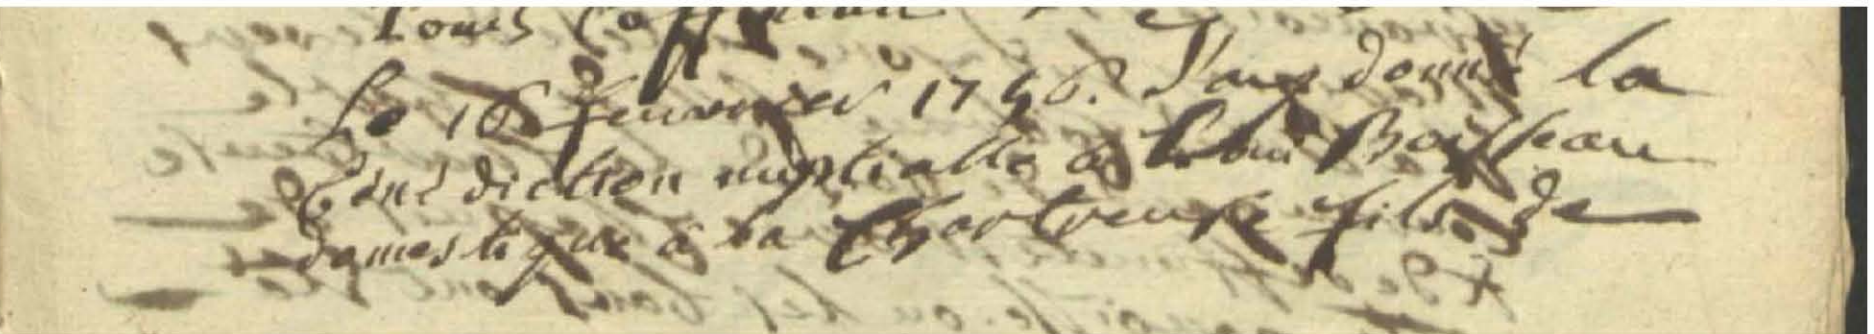 Le 16 feuvrier 1746. J'ay donné la
bénédiction nuptialle à Louis Boisseau
domestique à la Chartreuse fils de